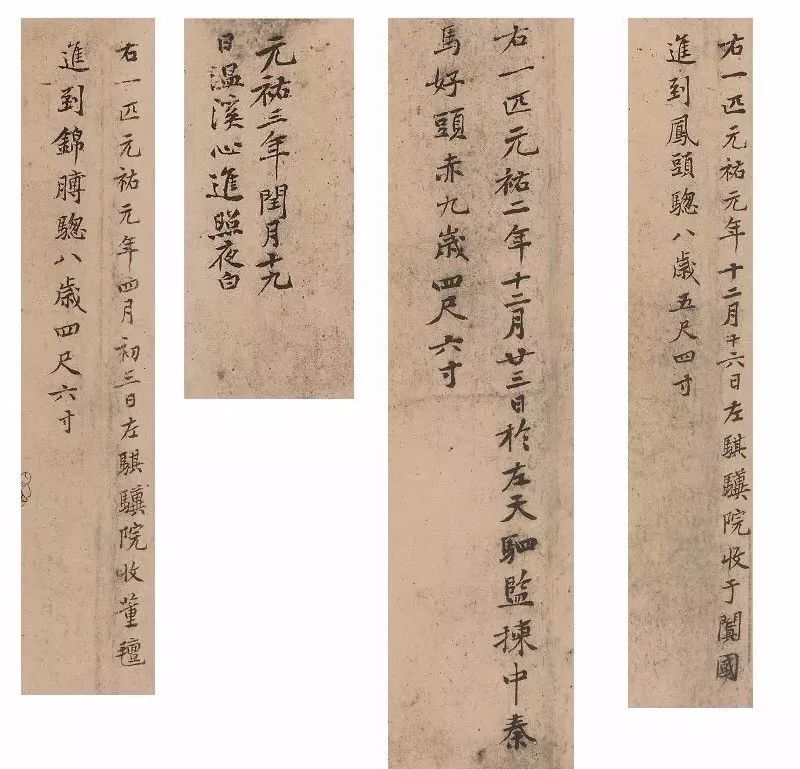 右一匹元祐元年十二月十六日左騏驥院收于闐國
進到鳳頭驄八歲五尺四寸
右一匹元祐二年十二月廿三日於左天駟監揀中秦
馬好頭赤九歲四尺六寸
元祐三年閏月十九
日温溪心進照夜白
右一匹元祐元年四月初三日左騏驥院收董氊
進到錦膊驄八歲四尺六寸